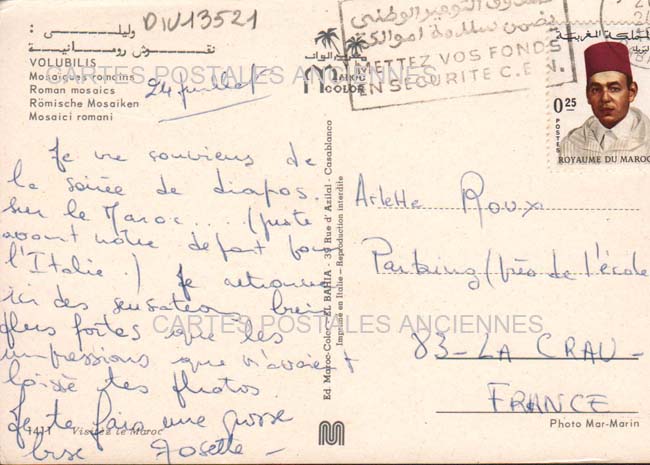 وليلي :
نقوش رومانية
VOLUBILIS
Mosaiques romaines
Roman mosaics
Römische Mosaiken
Mosaici romani
DIV13521
24 juillet
CARTES POSTALES ANCIENNES
MAROC
COLOR
صندوق التوفير الوطني
يضمن سلامة أموالكم
METTEZ VOS FONDS
EN SECURITE C.E.N.
المملكة المغربية
0.25
POSTES
ROYAUME DU MAROC
Je me souviens de
la soirée de diapos.
sur le Maroc... (juste
avant notre départ pour
l'Italie.) Je retrouve
ici des sensations bien
plus fortes que les
impressions que m'avaient
laissé tes photos.
Je te fais une grosse
bise Josette -
1411 Visitez le Maroc
Ed. Maroc-Color - EL BAHIA - 39 Rue d'Azilal - Casablanca
Imprimé en Italie - Reproduction interdite
Arlette Roux
Parking (près de l'école
CARTES POSTALES ANCIENNES
83 - LA CRAU -
FRANCE
Photo Mar-Marin